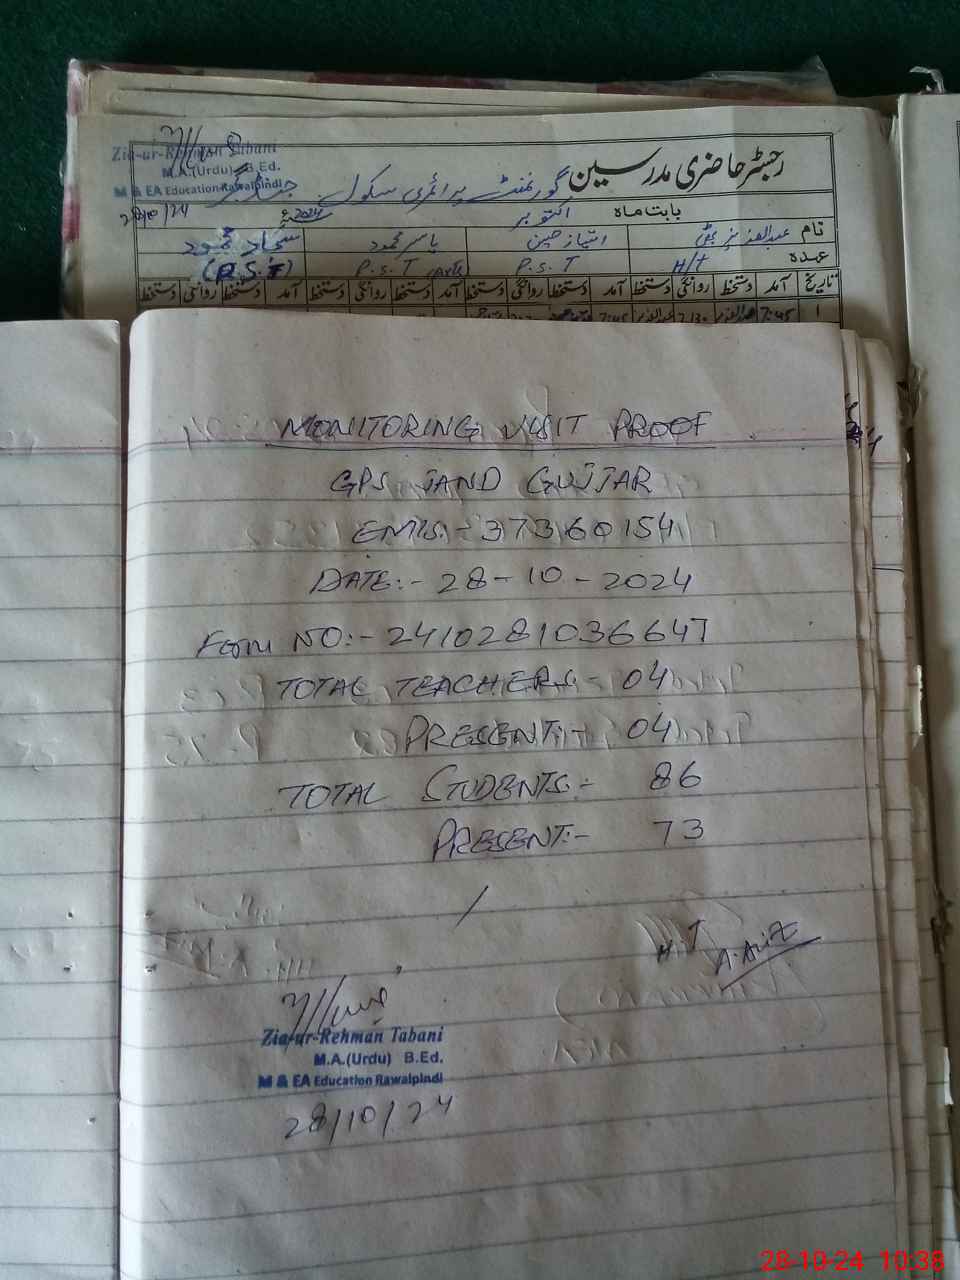 Zia-ur-Rehman Tabani
M.A.(Urdu) B.Ed.
M & EA Education Rawalpindi
28/10/24
رجسٹر حاضری مدرسین
گورنمنٹ پرائمری سکول
بابت ماہ اکتوبر 2024ء
نام عبدالعزیز بھٹی امتیاز حسین یاسر محمود سجاد محمود
عہدہ H/t P.S.T P.S.T (P.S.T)
تاریخ آمد دستخط روانگی دستخط آمد دستخط روانگی دستخط آمد دستخط روانگی دستخط آمد دستخط روانگی دستخط
1 7:45 7:45
MONITORING VISIT PROOF
GPS JAND GUJJAR
EMIS:- 37360154
DATE:- 28-10-2024
FORM NO:- 2410281036647
TOTAL TEACHERS:- 04
PRESENT:- 04
TOTAL STUDENTS:- 86
PRESENT:- 73
H.T A.Aziz
Zia-ur-Rehman Tabani
M.A.(Urdu) B.Ed.
M & EA Education Rawalpindi
28/10/24
28-10-24 10:38